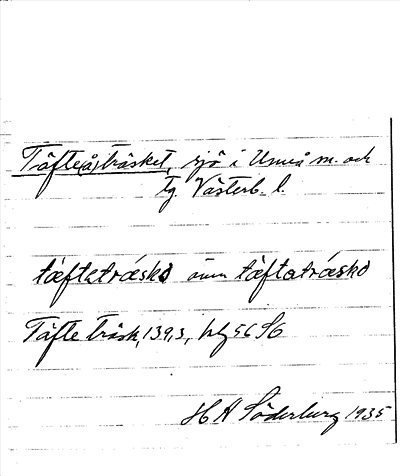 Täfte(å)träsket, sjö i Umeå m. och
tg. Västerb. l.
täftatrásko även täftatrásko
Täfte träsk, 139,3, 56 SG
H A Söderberg 1935